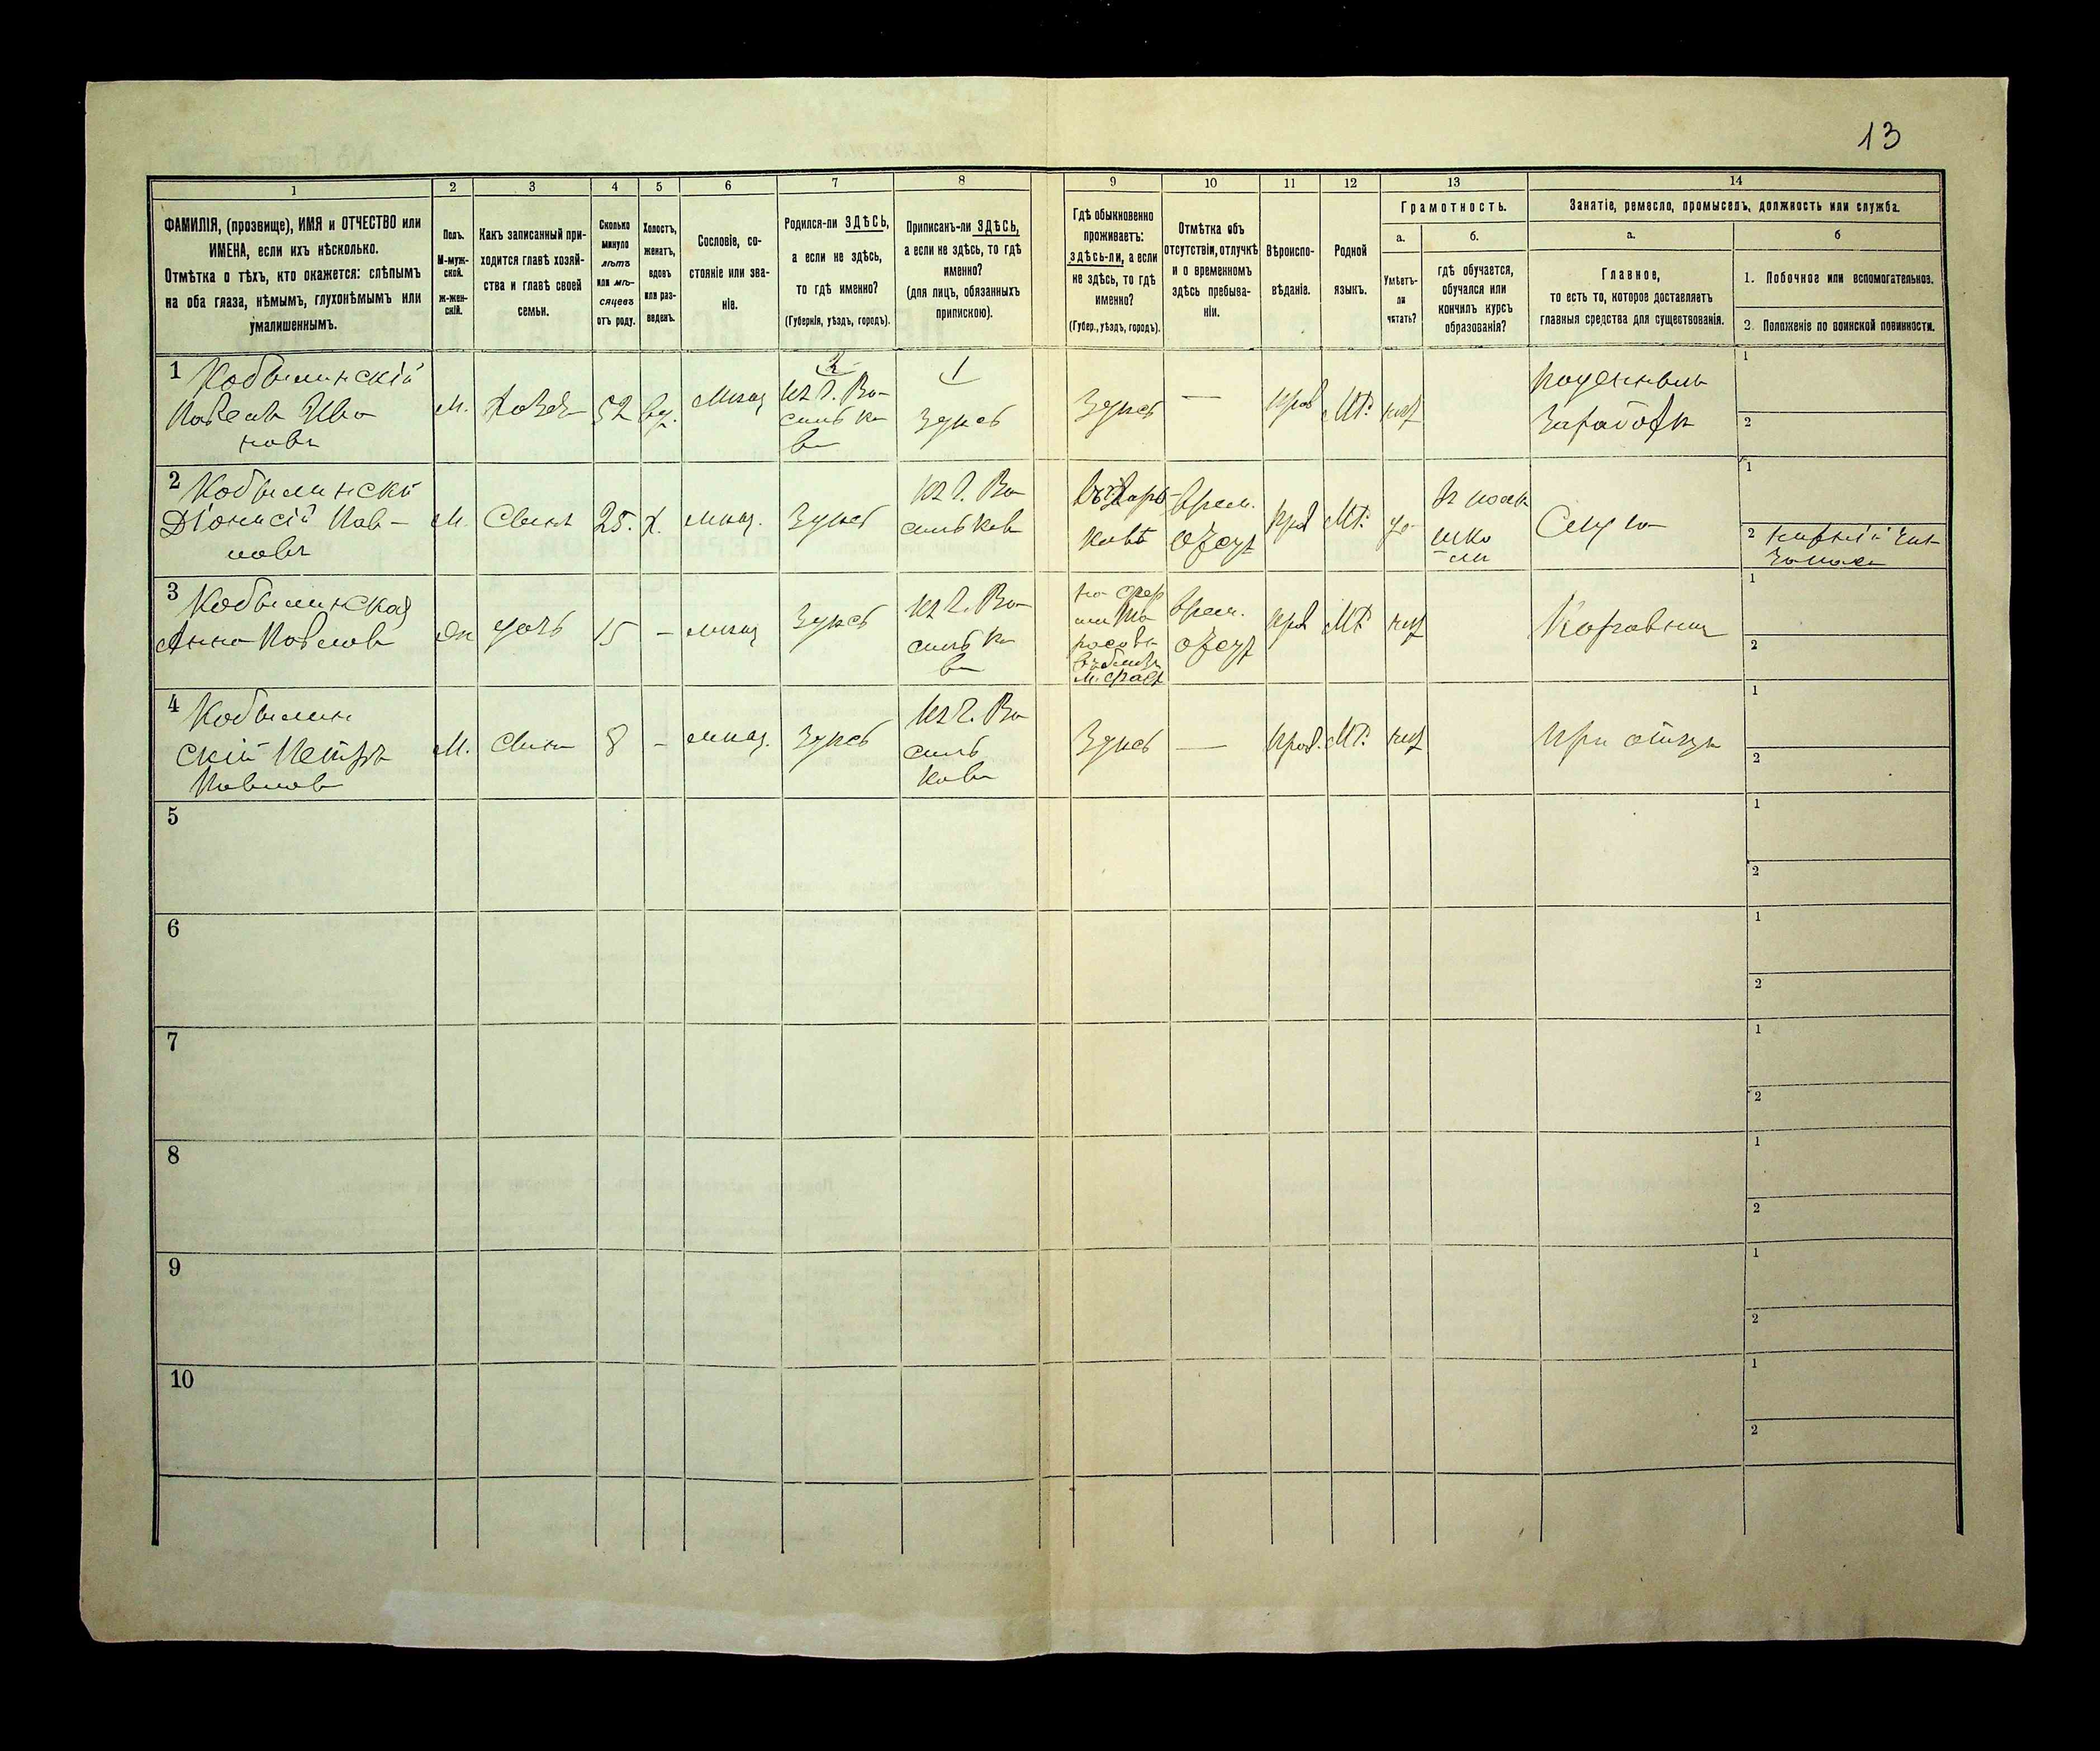 13
1
2
3
4
5
6
7
8
9
10
11
12
13
14
ФАМИЛІЯ, (прозвище), ИМЯ и ОТЧЕСТВО или
ИМЕНА, если ихъ нѣсколько.
Отмѣтка о тѣхъ, кто окажется: слѣпымъ
на оба глаза, нѣмымъ, глухонѣмымъ или
умалишеннымъ.
Полъ.
М-муж-
ской.
ж-жен-
скій.
Какъ записанный при-
ходится главѣ хозяй-
ства и главѣ своей
семьи.
Сколько
минуло
лѣтъ
или мѣ-
сяцевъ
отъ роду.
Холостъ,
женатъ,
вдовъ
или раз-
веденъ.
Сословіе, со-
стояніе или зва-
ніе.
Родился-ли ЗДѢСЬ,
а если не здѣсь,
то гдѣ именно?
(Губернія, уѣздъ, городъ).
Приписанъ-ли ЗДѢСЬ,
а если не здѣсь, то гдѣ
именно?
(для лицъ, обязанныхъ
припискою).
Гдѣ обыкновенно
проживаетъ:
здѣсь-ли, а если
не здѣсь, то гдѣ
именно?
(Губер., уѣздъ, городъ).
Отмѣтка объ
отсутствіи, отлучкѣ
и о временномъ
здѣсь пребыва-
ніи.
Вѣроиспо-
вѣданіе.
Родной
языкъ.
Грамотность.
а.
б.
Умѣетъ-
ли
читать?
гдѣ обучается,
обучался или
кончилъ курсъ
образованія?
Занятіе, ремесло, промыселъ, должность или служба.
а.
б
Главное,
то есть то, которое доставляетъ
главныя средства для существованія.
1. Побочное или вспомогательное.
2. Положеніе по воинской повинности.
1 Кобылинскій
Павелъ Ива
новъ
М. Хозяи 52 вд. мѣщ
1
из г. Ва-
силь ко
ва
1
Здѣсь
Здѣсь — прав МР. нѣт
поденныи
Заработки
1
2
2 Кобылинскі
Діонисій Пав-
ловъ
М. Сынъ 25. Х. мѣщ. Здѣсь
из г. Ва
силькова
врем.
отсут
прав МР. да
шко
лѣ
Служ
1
2
3 Кобылинская
Анна Павлова
Жн дочь 15 — мѣщ Здѣсь
из г. Ва-
силь ко
ва
врем.
отсут
прав МР нѣт
1
2
4 Кобылин
скій Петръ
Павлов
М. Сынъ 8 — мѣщ. Здѣсь
из г. Ва
силь
кова
Здѣсь — прав. МР. нѣт
При отцѣ
1
2
5
1
2
6
1
2
7
1
2
8
1
2
9
1
2
10
1
2